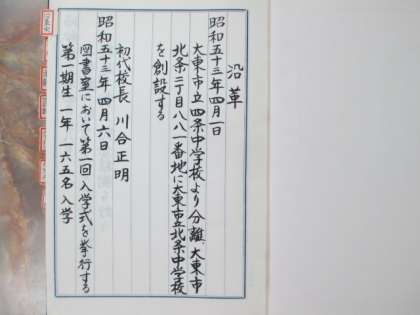 沿革
昭和五十三年四月一日
大東市立四条中学校より分離、大東市
北条二丁目八八一番地に大東市立北条中学校
を創設する
初代校長 川合正明
昭和五十三年四月六日
図書室において第一回入学式を挙行する
第一期生一年 一六五名入学